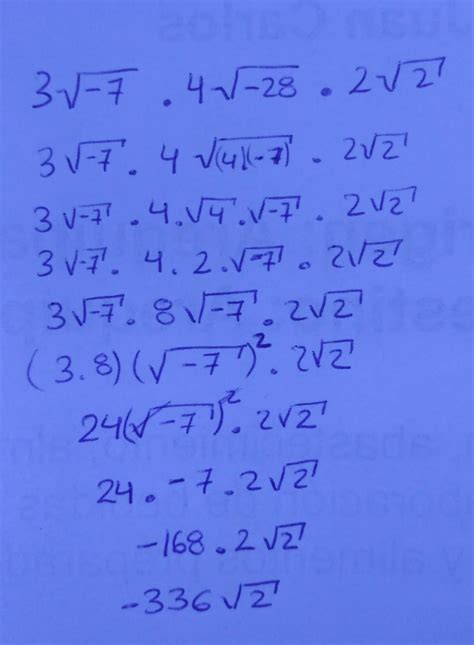 Juan Carlos
3√-7 . 4√-28 . 2√2
3√-7 . 4 √(4)(-7) . 2√2
3√-7 . 4.√4.√-7 . 2√2
3√-7 . 4.2.√-7 . 2√2
3√-7 . 8√-7 . 2√2
(3.8)(√-7)² . 2√2
24(√-7)² . 2√2
24 . -7 . 2√2
-168 . 2√2
-336√2